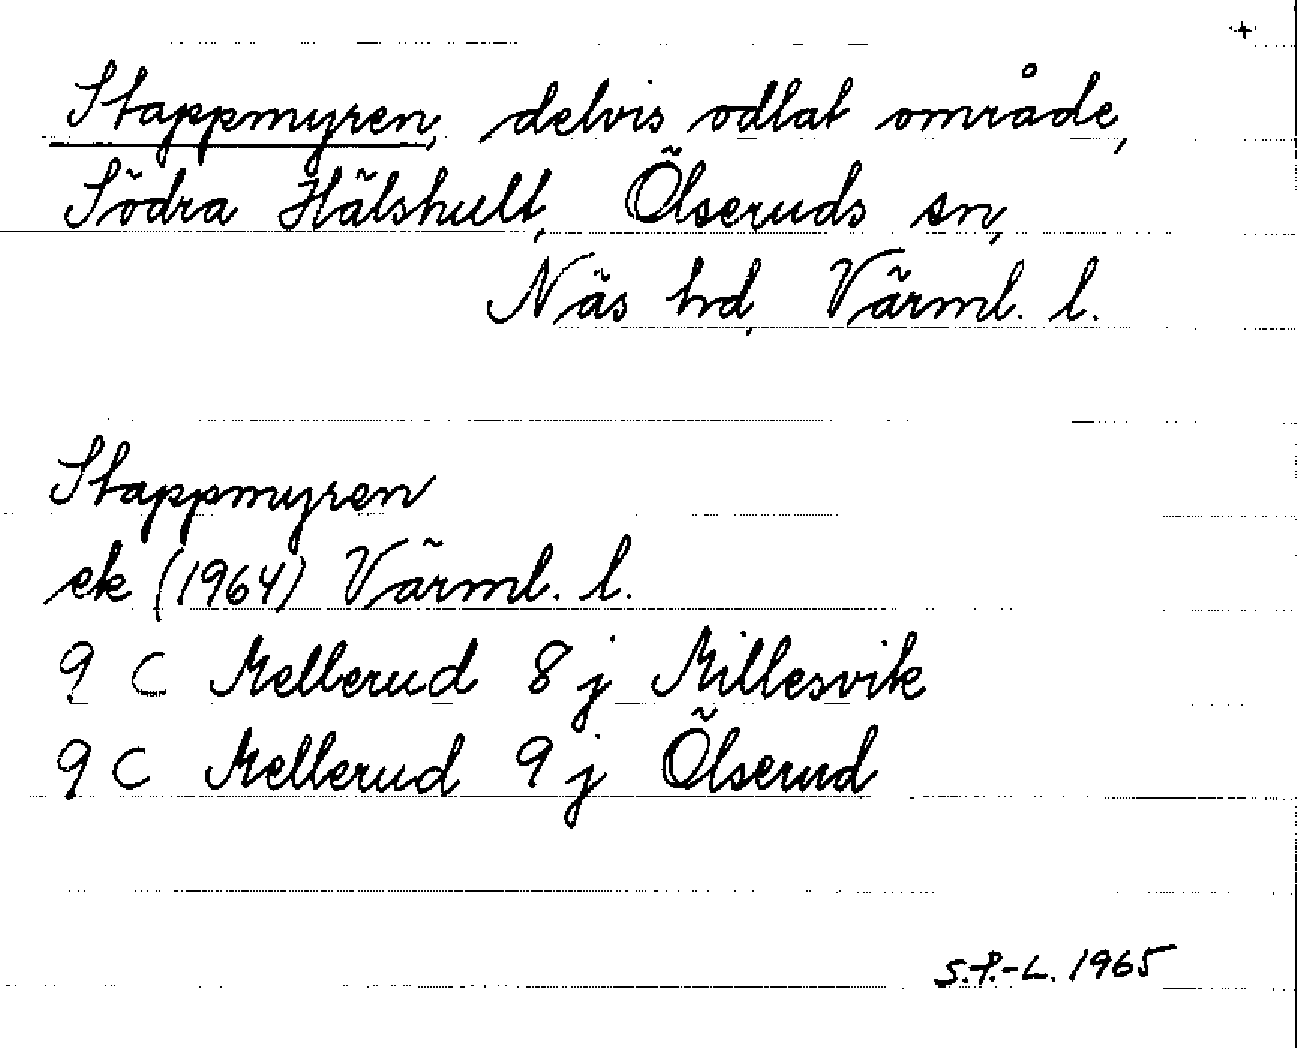 +
Stappmyren, delvis odlat område,
Södra Hälshult, Ölseruds sn,
Näs hd, Värml. l.
Stappmyren
ek (1964) Värml. l.
9 C Mellerud 8 j Millesvik
9 C Mellerud 9 j Ölserud
S.P.-L. 1965